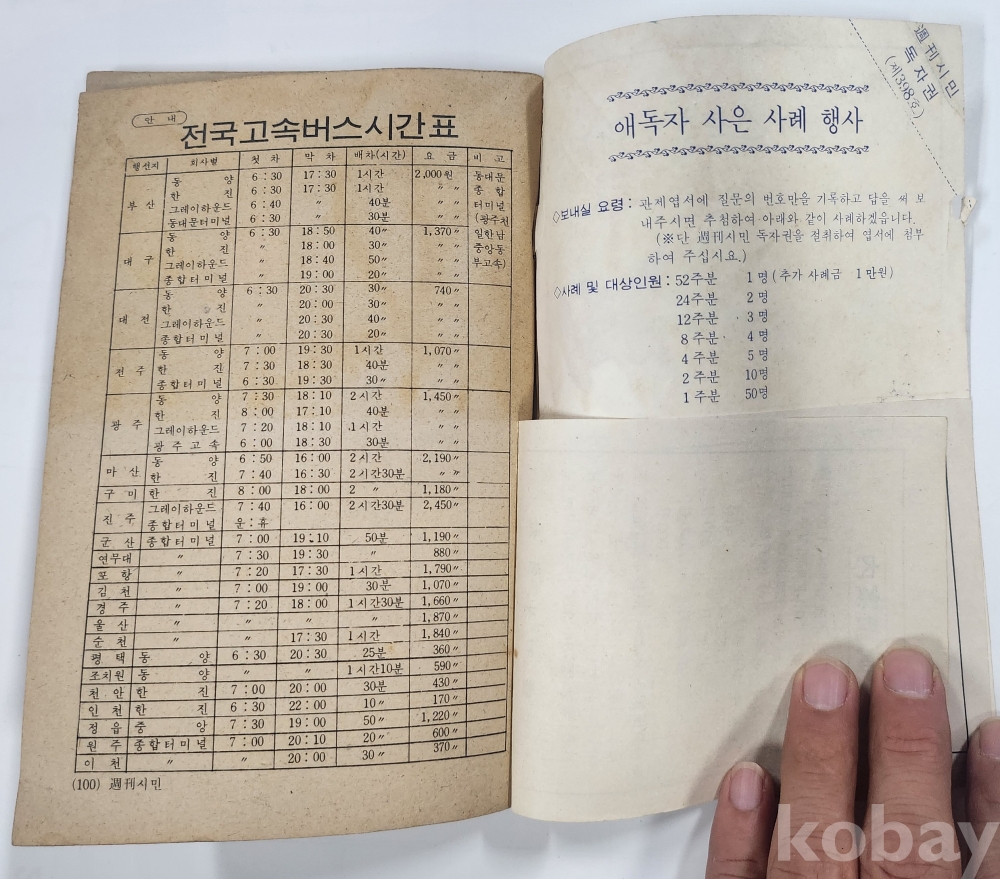 안 내
전국고속버스시간표
행선지 회사별 첫 차 막 차 배차(시간) 요 금 비 고
부 산 동 양 6:30 17:30 1시간 2,000원 동대문
한 진 6:30 17:30 1시간 〃 〃 종 합
그레이하운드 6:40 〃 40분 〃 〃 터미널
동대문터미널 6:30 〃 30분 〃 〃 (광주전
대 구 동 양 6:30 18:50 40〃 1,370〃 일한남
한 진 〃 18:00 30〃 〃 〃 중앙동
그레이하운드 〃 18:40 50〃 〃 〃 부고속)
종합터미널 〃 19:00 20〃 〃 〃
대 전 동 양 6:30 20:30 30〃 740〃
한 진 〃 20:00 30〃 〃 〃
그레이하운드 〃 20:30 40〃 〃 〃
종합터미널 〃 20:30 20〃 〃 〃
전 주 동 양 7:00 19:30 1시간 1,070〃
한 진 7:30 18:30 40분 〃 〃
종합터미널 6:30 19:30 30〃 〃 〃
광 주 동 양 7:30 18:10 2시간 1,450〃
한 진 8:00 17:10 40분 〃 〃
그레이하운드 7:20 18:10 1시간 〃 〃
광 주 고 속 6:00 18:30 30분 〃 〃
마 산 동 양 6:50 16:00 2시간 2,190〃
한 진 7:40 16:30 2시간30분 〃 〃
구 미 한 진 8:00 18:00 2 〃 1,180〃
진 주 그레이하운드 7:40 16:00 2시간30분 2,450〃
종합터미널 운:휴
군 산 종합터미널 7:00 19:10 50분 1,190〃
연무대 〃 7:30 19:30 〃 880〃
포 항 〃 7:20 17:30 1시간 1,790〃
김 천 〃 7:00 19:00 30분 1,070〃
경 주 〃 7:20 18:00 1시간30분 1,660〃
울 산 〃 〃 〃 〃 1,870〃
순 천 〃 〃 17:30 1시간 1,840〃
평 택 동 양 6:30 20:30 25분 360〃
조치원 동 양 〃 〃 1시간10분 590〃
천 안 한 진 7:00 20:00 30분 430〃
인 천 한 진 6:30 22:00 10〃 170〃
정 읍 중 앙 7:30 19:00 50〃 1,220〃
원 주 종합터미널 7:00 20:10 20〃 600〃
이 천 〃 〃 20:00 30〃 370〃
(100) 週刊시민
週刊시민
독자권
(제398호)
애독자 사은 사례 행사
◇보내실 요령: 관제엽서에 질문의 번호만을 기록하고 답을 써 보
내주시면 추첨하여 아래와 같이 사례하겠읍니다.
(※단 週刊시민 독자권을 절취하여 엽서에 첨부
하여 주십시요.)
◇사례 및 대상인원: 52주분 1명(추가 사례금 1만원)
24주분 2명
12주분 3명
8주분 4명
4주분 5명
2주분 10명
1주분 50명
kobay